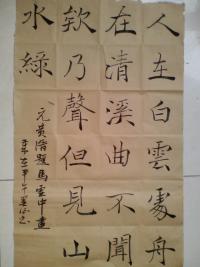 人在白雲處舟
在清溪曲不聞
欸乃聲但見山
水綠
元黃溍題馬雲中畫